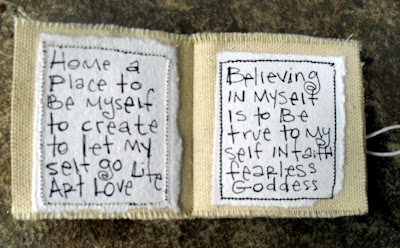 Home a
Place to
Be Myself
to create
to let my
self go
Life
Art Love
Believing
in Myself
is to Be
true to My
self in faith
fearless
Goddess